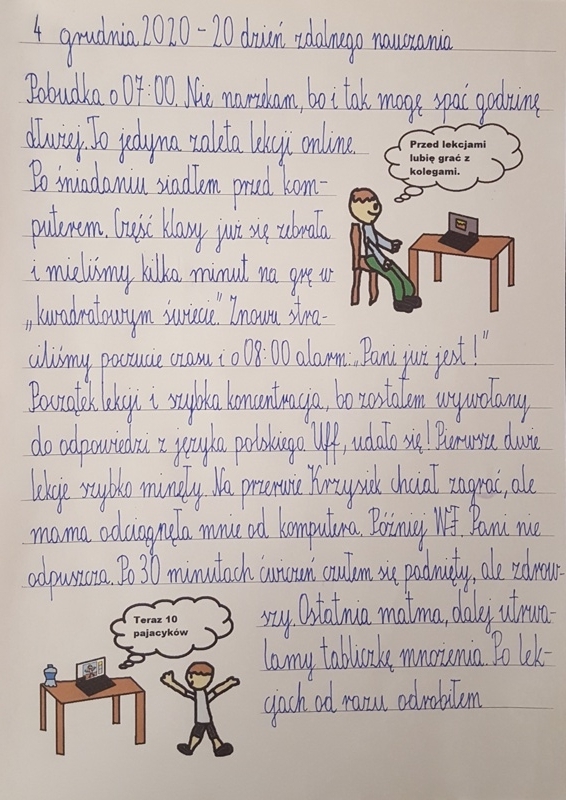 4 grudnia 2020 - 20 dzień zdalnego nauczania
Pobudka o 07:00. Nie narzekam, bo i tak mogę spać godzinę
dłużej. To jedyna zaleta lekcji online.
Przed lekcjami
lubię grać z
kolegami.
Po śniadaniu siadłem przed kom-
puterem. Część klasy już się zebrała
i mieliśmy kilka minut na grę w
„kwadratowym świecie". Znowu stra-
ciliśmy poczucie czasu i o 08:00 alarm: „Pani już jest!"
Początek lekcji i szybka koncentracja, bo zostałem wywołany
do odpowiedzi z języka polskiego. Uff, udało się! Pierwsze dwie
lekcje szybko minęły. Na przerwie Krzysiek chciał zagrać, ale
mama odciągnęła mnie od komputera. Później WF. Pani nie
odpuszcza. Po 30 minutach ćwiczeń czułem się padnięty, ale zdrow-
szy. Ostatnia matma, dalej utrwa-
lamy tabliczkę mnożenia. Po lek-
cjach od razu odrobiłem
Teraz 10
pajacyków